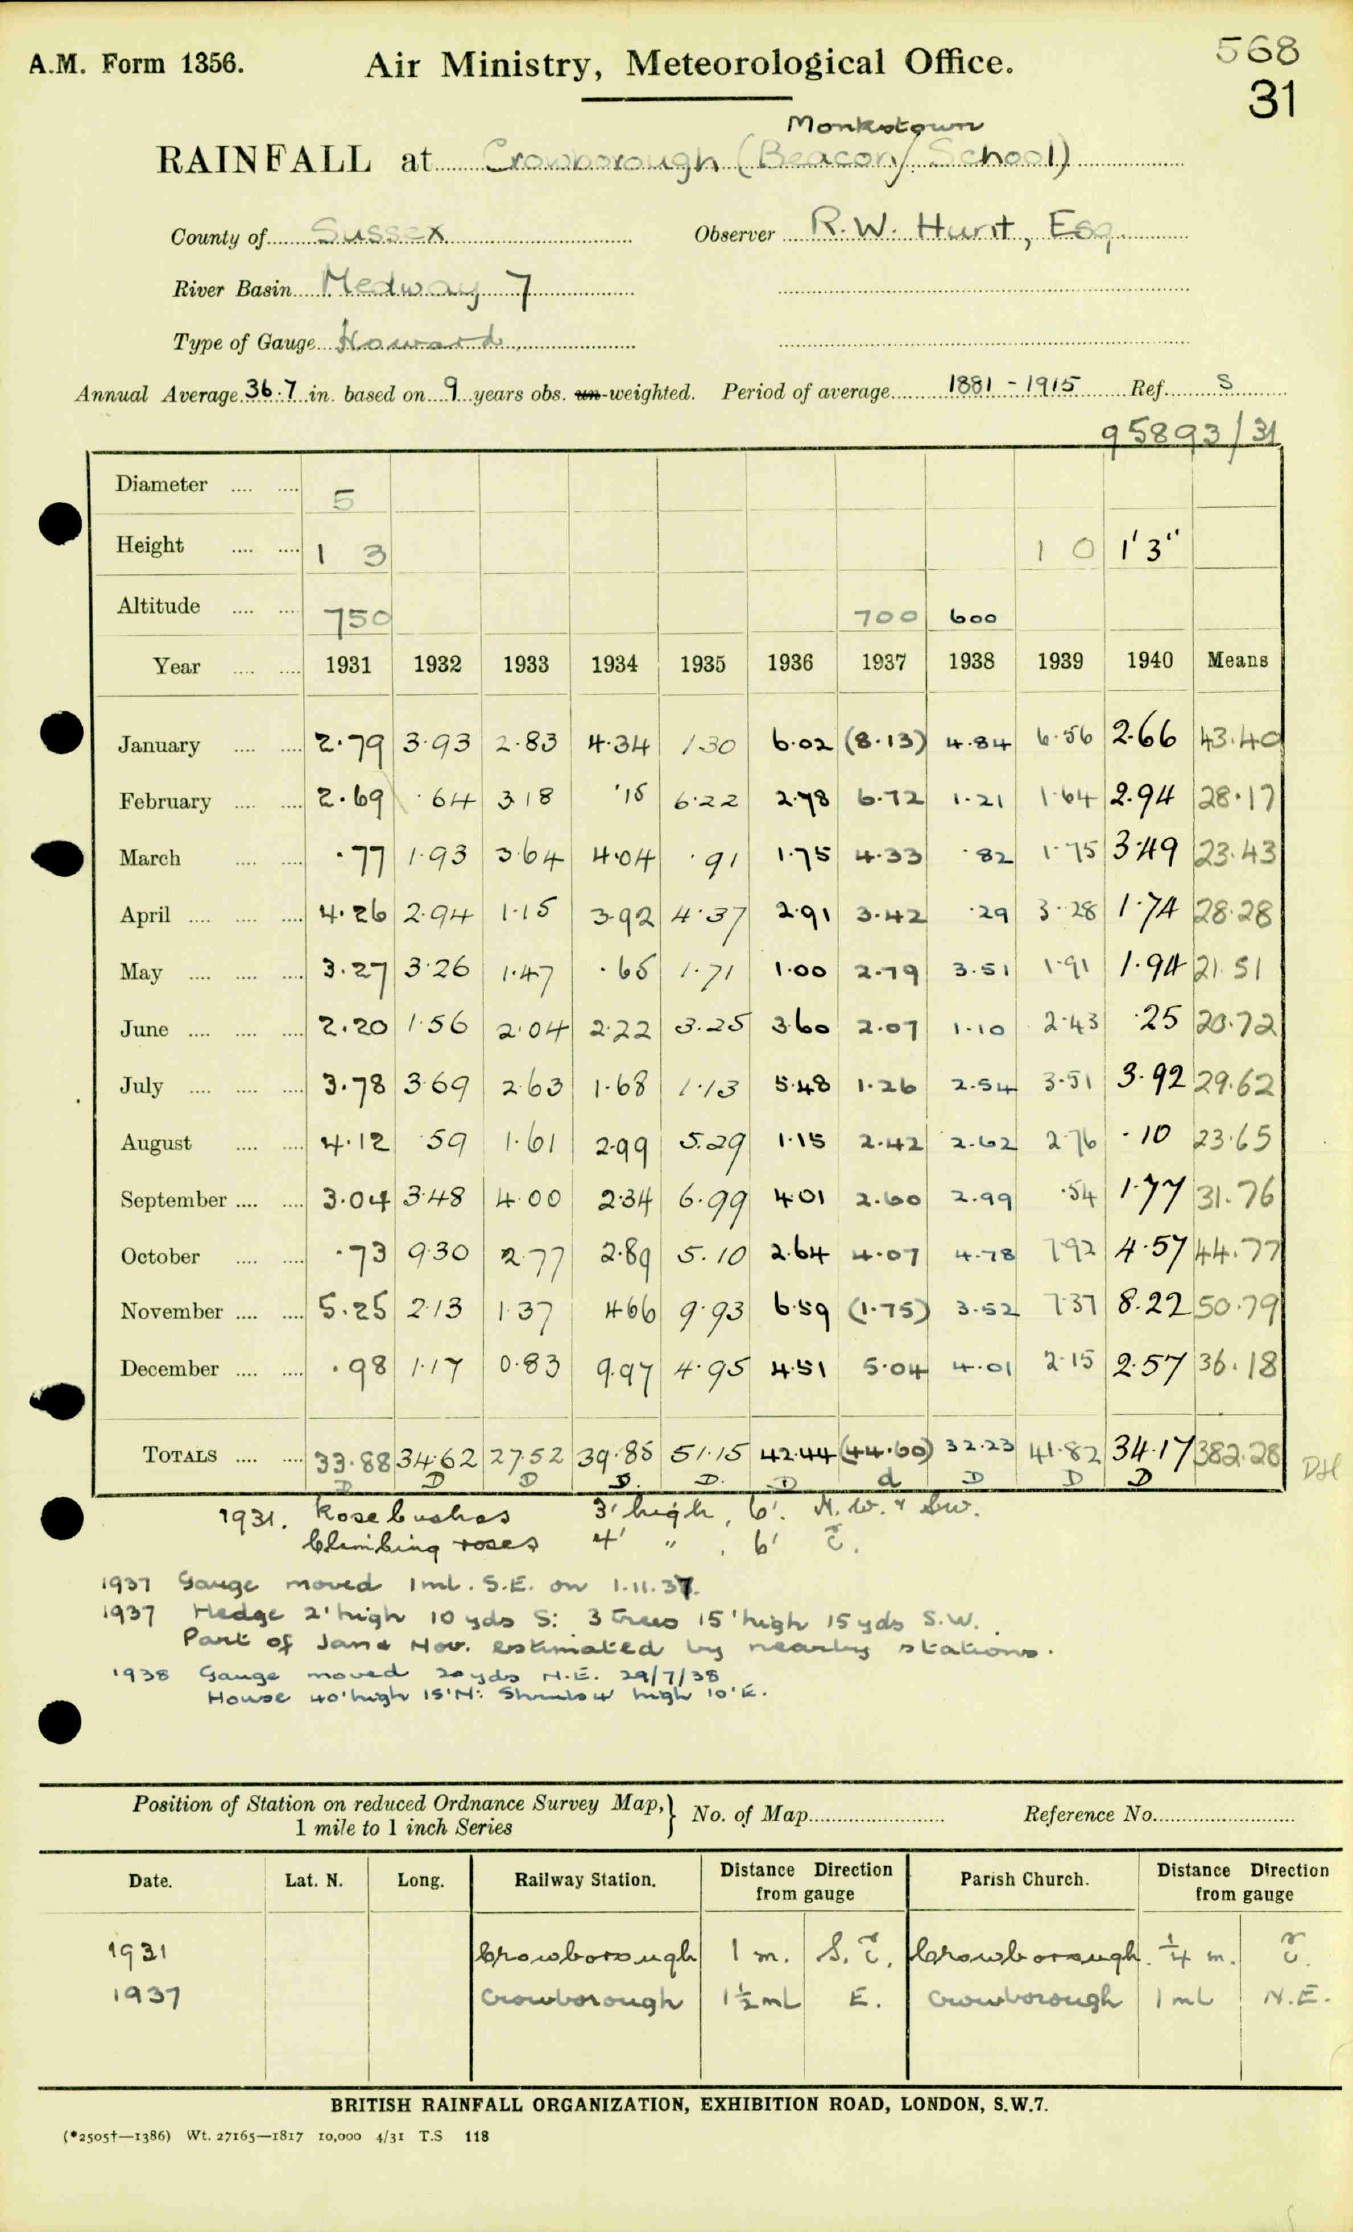 A.M. Form 1356.
Air Ministry, Meteorological Office.
568
31
Monkstown
RAINFALL at Crowborough (Beacon School)
County of Sussex Observer R.W. Hunt, Esq.
River Basin Medway 7
Type of Gauge Howard
Annual Average 36.7 in. based on 9 years obs. un-weighted. Period of average 1881 - 1915 Ref. S
95893/31
Diameter 5
Height 1 3 1 0 1' 3"
Altitude 750 700 600
Year 1931 1932 1933 1934 1935 1936 1937 1938 1939 1940 Means
January 2.79 3.93 2.83 4.34 1.30 6.02 (8.13) 4.84 6.56 2.66 43.40
February 2.69 .64 3.18 .15 6.22 2.78 6.72 1.21 1.64 2.94 28.17
March .77 1.93 3.64 4.04 .91 1.75 4.33 .82 1.75 3.49 23.43
April 4.26 2.94 1.15 3.92 4.37 2.91 3.42 .29 3.28 1.74 28.28
May 3.27 3.26 1.47 .65 1.71 1.00 2.79 3.51 1.91 1.94 21.51
June 2.20 1.56 2.04 2.22 3.25 3.60 2.07 1.10 2.43 .25 20.72
July 3.78 3.69 2.63 1.68 1.13 5.48 1.26 2.54 3.51 3.92 29.62
August 4.12 .59 1.61 2.99 5.29 1.15 2.42 2.62 2.76 .10 23.65
September 3.04 3.48 4.00 2.34 6.99 4.01 2.60 2.99 .54 1.77 31.76
October .73 9.30 2.77 2.89 5.10 2.64 4.07 4.78 7.92 4.57 44.77
November 5.25 2.13 1.37 4.66 9.93 6.59 (1.75) 3.52 7.37 8.22 50.79
December .98 1.17 0.83 9.97 4.95 4.51 5.04 4.01 2.15 2.57 36.18
TOTALS 33.88 34.62 27.52 39.85 51.15 42.44 (44.60) 32.23 41.82 34.17 382.28
D D D D D D d D D D
DH
1931. Rose bushes 3' high, 6'. N.W. & SW.
Climbing roses 4' " , 6' E.
1937 Gauge moved 1 ml. S.E. on 1.11.37.
1937 Hedge 2' high 10 yds S: 3 trees 15' high 15 yds S.W.
Part of Jan & Nov. estimated by nearby stations.
1938 Gauge moved 20 yds N.E. 29/7/38
House 40' high 15' N: Shrubs 4' high 10' E.
Position of Station on reduced Ordnance Survey Map, 1 mile to 1 inch Series } No. of Map Reference No.
Date. Lat. N. Long. Railway Station. Distance Direction from gauge Parish Church. Distance Direction from gauge
1931 Crowborough 1 m. S.E. Crowborough ¼ m. E.
1937 Crowborough 1½ ml E. Crowborough 1 ml N.E.
BRITISH RAINFALL ORGANIZATION, EXHIBITION ROAD, LONDON, S.W.7.
(*2505†—1386) Wt. 27165—1817 10,000 4/31 T.S 118